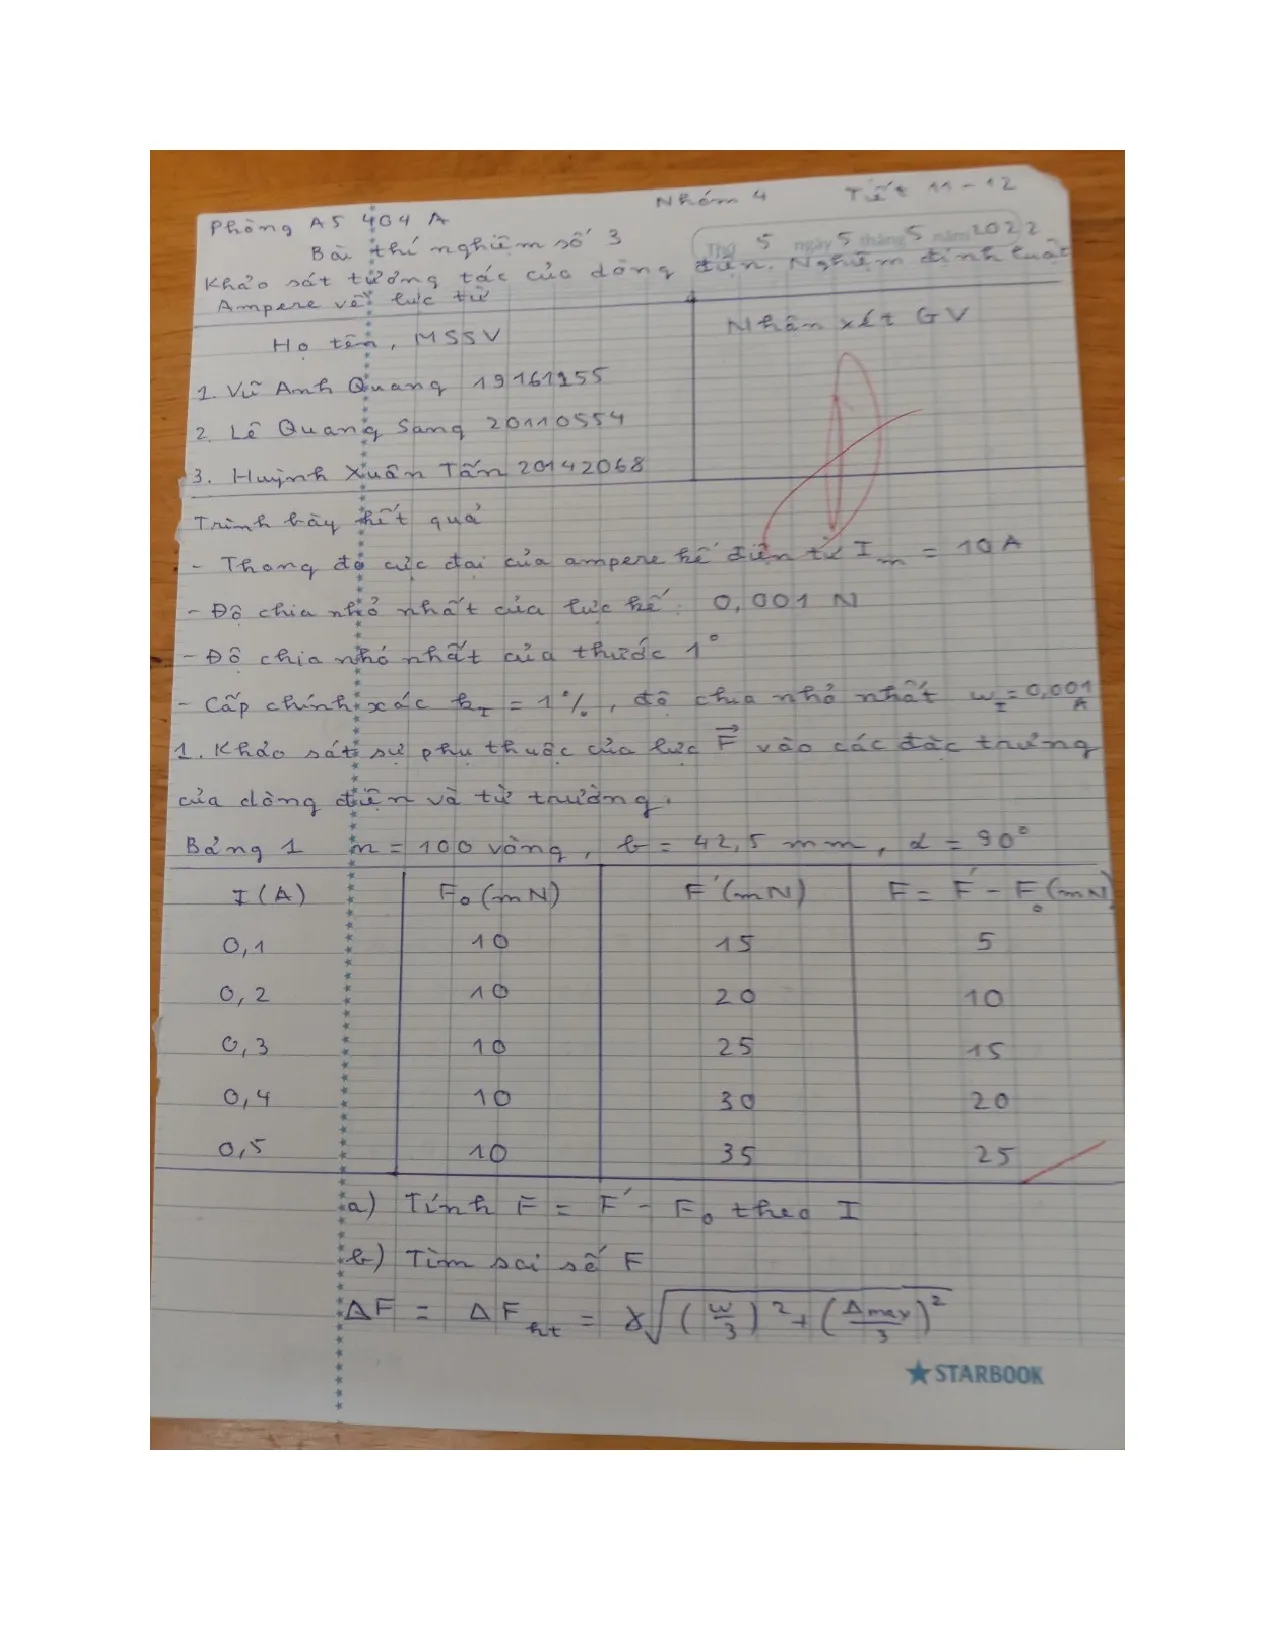 Nhóm 4 Tiết 11-12
Phòng A5 404 A
Thứ 5 ngày 5 tháng 5 năm 2022
Bài thí nghiệm số 3
Khảo sát tương tác của dòng điện. Nghiệm định luật
Ampere về lực từ
Họ tên, MSSV
Nhận xét GV
1. Vũ Anh Quang 19161255
2. Lê Quang Sang 20110554
3. Huỳnh Xuân Tấn 20142068
Trình bày kết quả
- Thang đo cực đại của ampere kế điện từ I_m = 10A
- Độ chia nhỏ nhất của lực kế: 0,001 N
- Độ chia nhỏ nhất của thước 1°
- Cấp chính xác k_I = 1%, độ chia nhỏ nhất w_I = 0,001 A
1. Khảo sát sự phụ thuộc của lực F⃗ vào các đặc trưng
của dòng điện và từ trường.
Bảng 1 n = 100 vòng, b = 42,5 mm, α = 90°
I (A) F₀ (mN) F' (mN) F = F' - F₀ (mN)
0,1 10 15 5
0,2 10 20 10
0,3 10 25 15
0,4 10 30 20
0,5 10 35 25
a) Tính F = F' - F₀ theo I
b) Tìm sai số F
ΔF = ΔF_ht = γ√((w/3)² + (Δmax/3)²)
STARBOOK